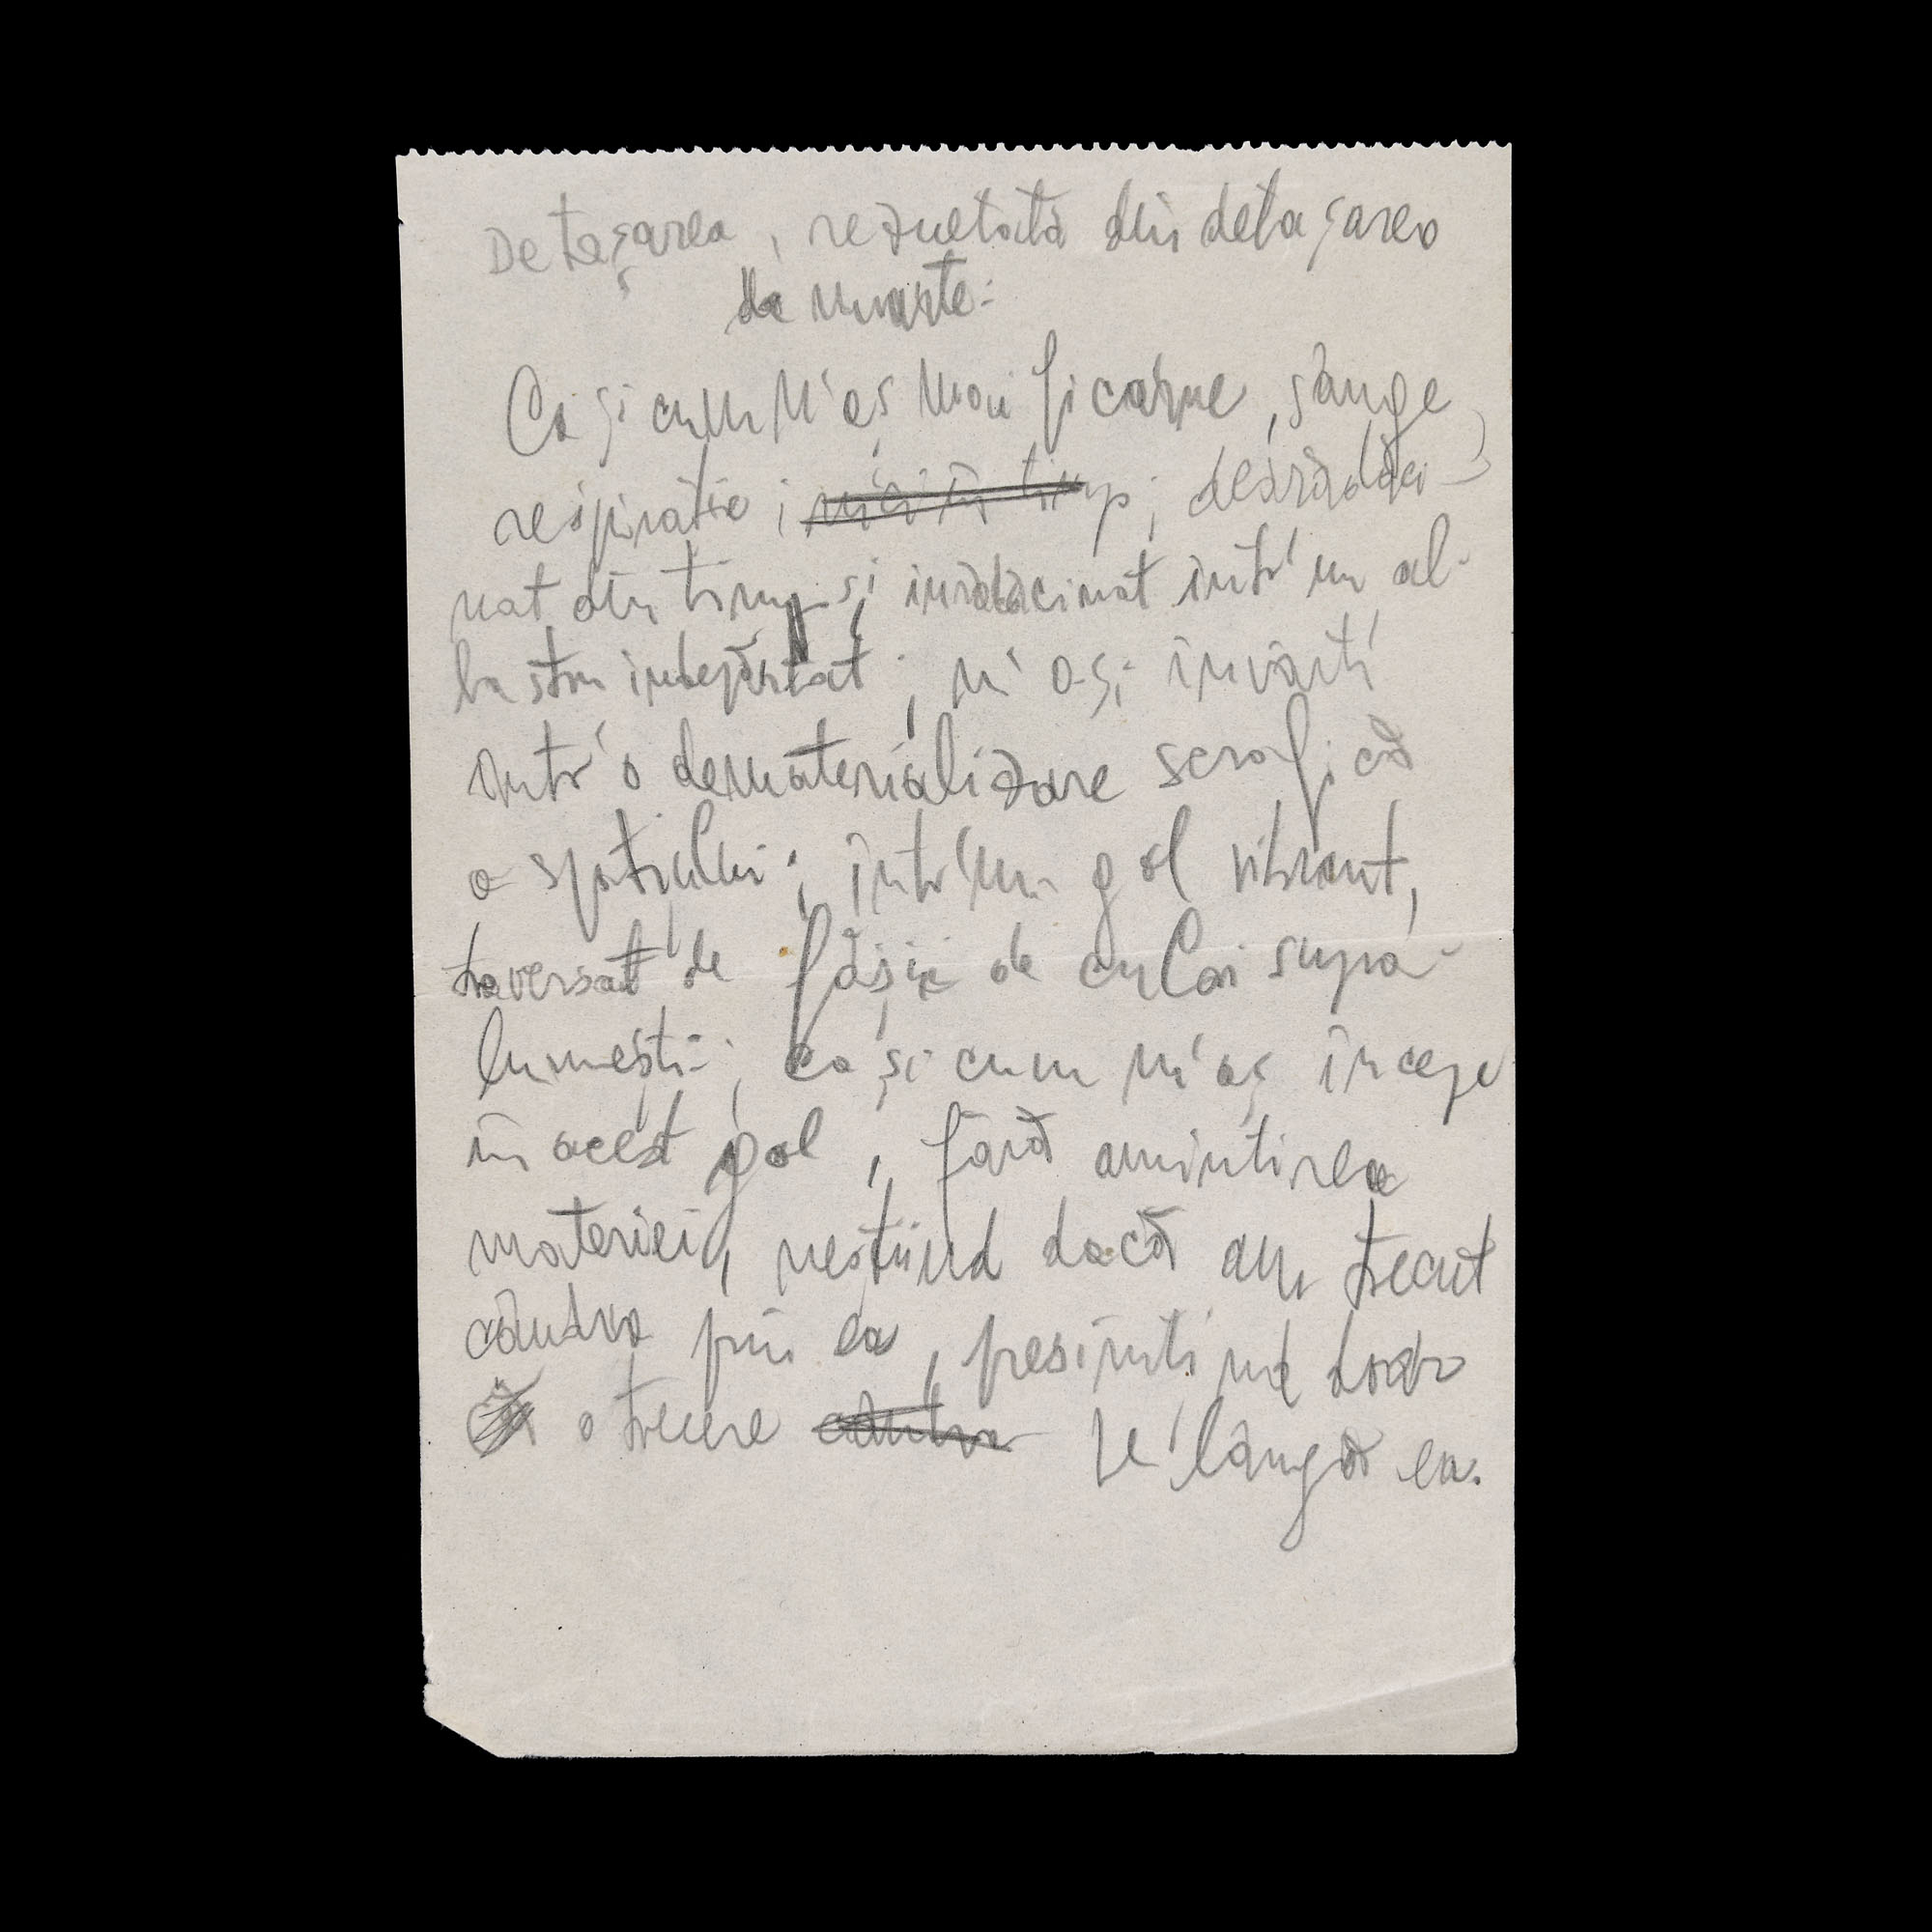 Detașarea, rezultată din detașarea
de moarte:
Ca și cum n'aș mai fi carne, sânge
respirație; nici în timp; desrădăci-
nat din timp și inrădăcinat intr'un al-
bastru indepărtat; m'ași învârti
intr'o dematerializare serafică
a spațiului; într'un gol vibrant,
traversat de fâșii de culori supra-
lumești; ca și cum m'aș începe
în acest gol, fără amintirea
materiei, neștiind dacă am trecut
cândva prin ea, presimțind doar
o trecere cândva pe lângă ea.